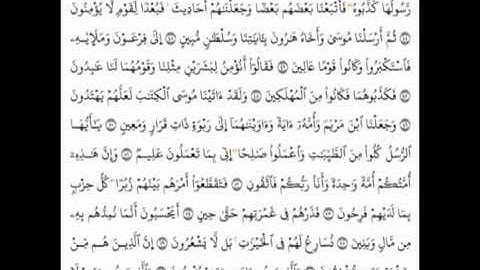 رَّسُولُهَا كَذَّبُوهُ ۚ فَأَتْبَعْنَا بَعْضَهُم بَعْضًا وَجَعَلْنَٰهُمْ أَحَادِيثَ ۚ فَبُعْدًا لِّقَوْمٍ لَّا يُؤْمِنُونَ
ثُمَّ أَرْسَلْنَا مُوسَىٰ وَأَخَاهُ هَٰرُونَ بِـَٔايَٰتِنَا وَسُلْطَٰنٍ مُّبِينٍ إِلَىٰ فِرْعَوْنَ وَمَلَإِي۟هِ
فَٱسْتَكْبَرُوا۟ وَكَانُوا۟ قَوْمًا عَالِينَ فَقَالُوٓا۟ أَنُؤْمِنُ لِبَشَرَيْنِ مِثْلِنَا وَقَوْمُهُمَا لَنَا عَٰبِدُونَ
فَكَذَّبُوهُمَا فَكَانُوا۟ مِنَ ٱلْمُهْلَكِينَ وَلَقَدْ ءَاتَيْنَا مُوسَى ٱلْكِتَٰبَ لَعَلَّهُمْ يَهْتَدُونَ
وَجَعَلْنَا ٱبْنَ مَرْيَمَ وَأُمَّهُۥٓ ءَايَةً وَءَاوَيْنَٰهُمَآ إِلَىٰ رَبْوَةٍ ذَاتِ قَرَارٍ وَمَعِينٍ يَٰٓأَيُّهَا
ٱلرُّسُلُ كُلُوا۟ مِنَ ٱلطَّيِّبَٰتِ وَٱعْمَلُوا۟ صَٰلِحًا ۖ إِنِّى بِمَا تَعْمَلُونَ عَلِيمٌ وَإِنَّ هَٰذِهِۦٓ
أُمَّتُكُمْ أُمَّةً وَٰحِدَةً وَأَنَا۠ رَبُّكُمْ فَٱتَّقُونِ فَتَقَطَّعُوٓا۟ أَمْرَهُم بَيْنَهُمْ زُبُرًا ۖ كُلُّ حِزْبٍۭ
بِمَا لَدَيْهِمْ فَرِحُونَ فَذَرْهُمْ فِى غَمْرَتِهِمْ حَتَّىٰ حِينٍ أَيَحْسَبُونَ أَنَّمَا نُمِدُّهُم بِهِۦ
مِن مَّالٍ وَبَنِينَ نُسَارِعُ لَهُمْ فِى ٱلْخَيْرَٰتِ ۚ بَل لَّا يَشْعُرُونَ إِنَّ ٱلَّذِينَ هُم مِّنْ